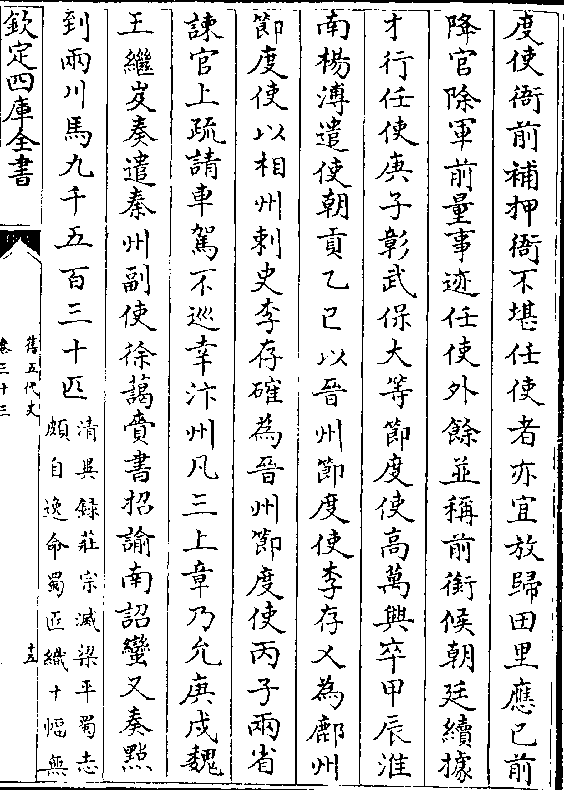 度使衙前補押衙不堪任使者亦宜放歸田里應已前
降官除軍前量事迹任使外餘並稱前銜候朝廷續據
才行任使庚子彰武保大等節度使高萬興卒甲辰淮
南楊溥遣使朝貢乙巳以晉州節度使李存乂為鄜州
節度使以相州刺史李存確為晉州節度使丙子兩省
諫官上疏請車駕不巡幸汴州凡三上章乃允庚戌魏
王繼岌奏遣秦州副使徐藹賫書招諭南詔蠻又奏點
到兩川馬九千五百三十匹
清異録莊宗滅梁平蜀志
頗自逸命蜀匠織十幅無
欽定四庫全書
舊五代史
卷三十三
十五